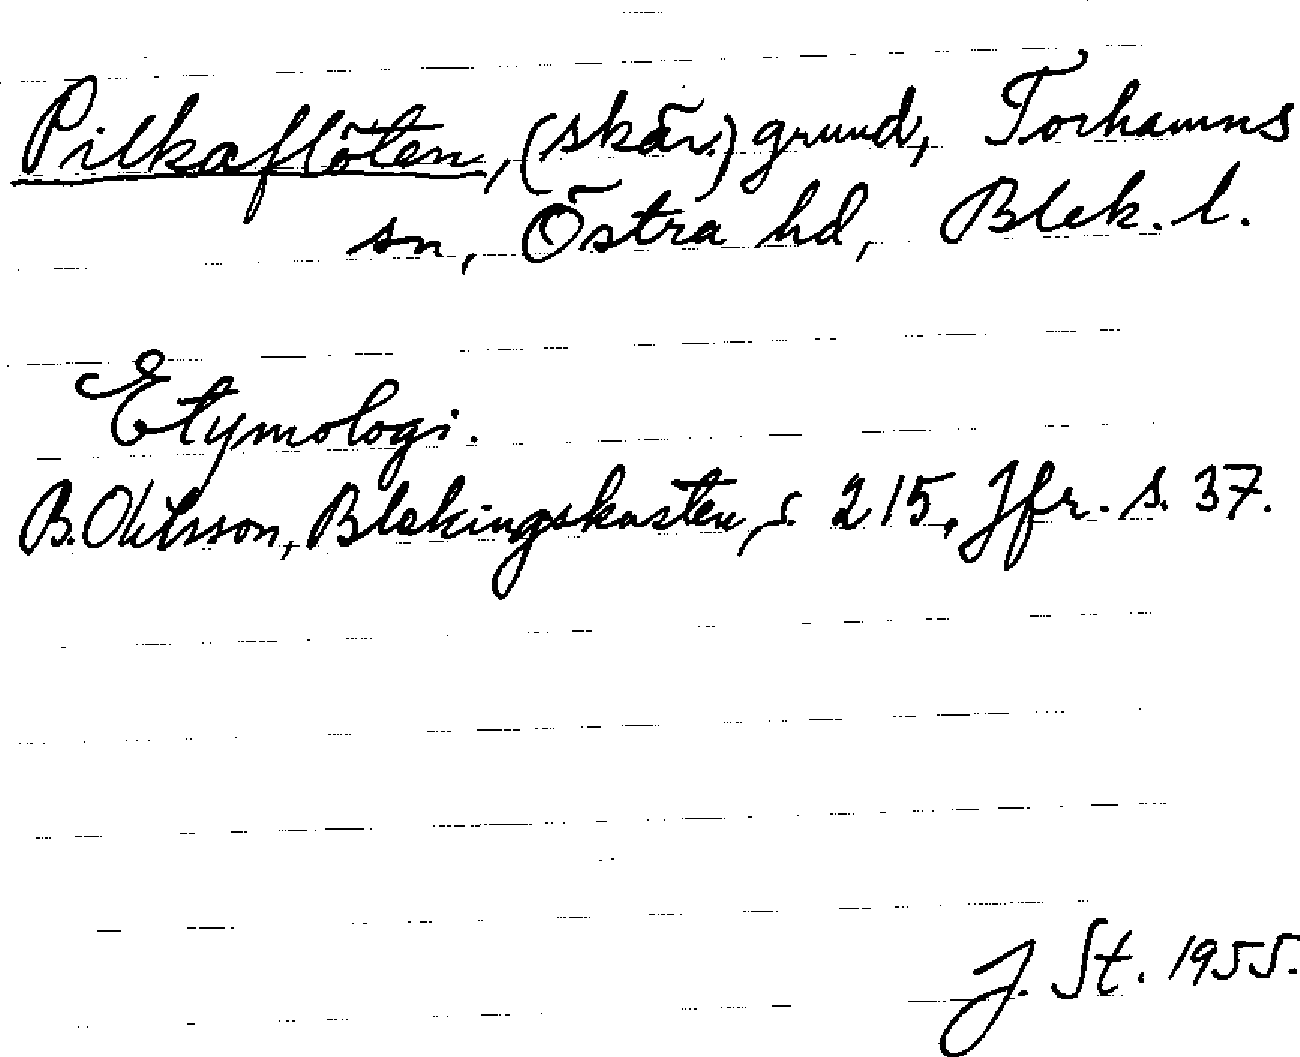 Pilkaflöten, (skär.) grund, Torhamns
sn, Östra hd, Blek. l.
Etymologi.
B. Ohlsson, Blekingskusten, s. 215. Jfr. s. 37.
J. St. 1955.